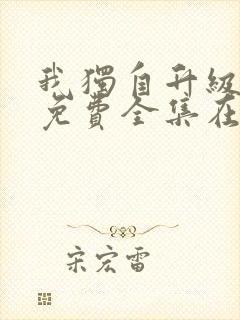 我獨自升級
免費全集在
宋宏雷